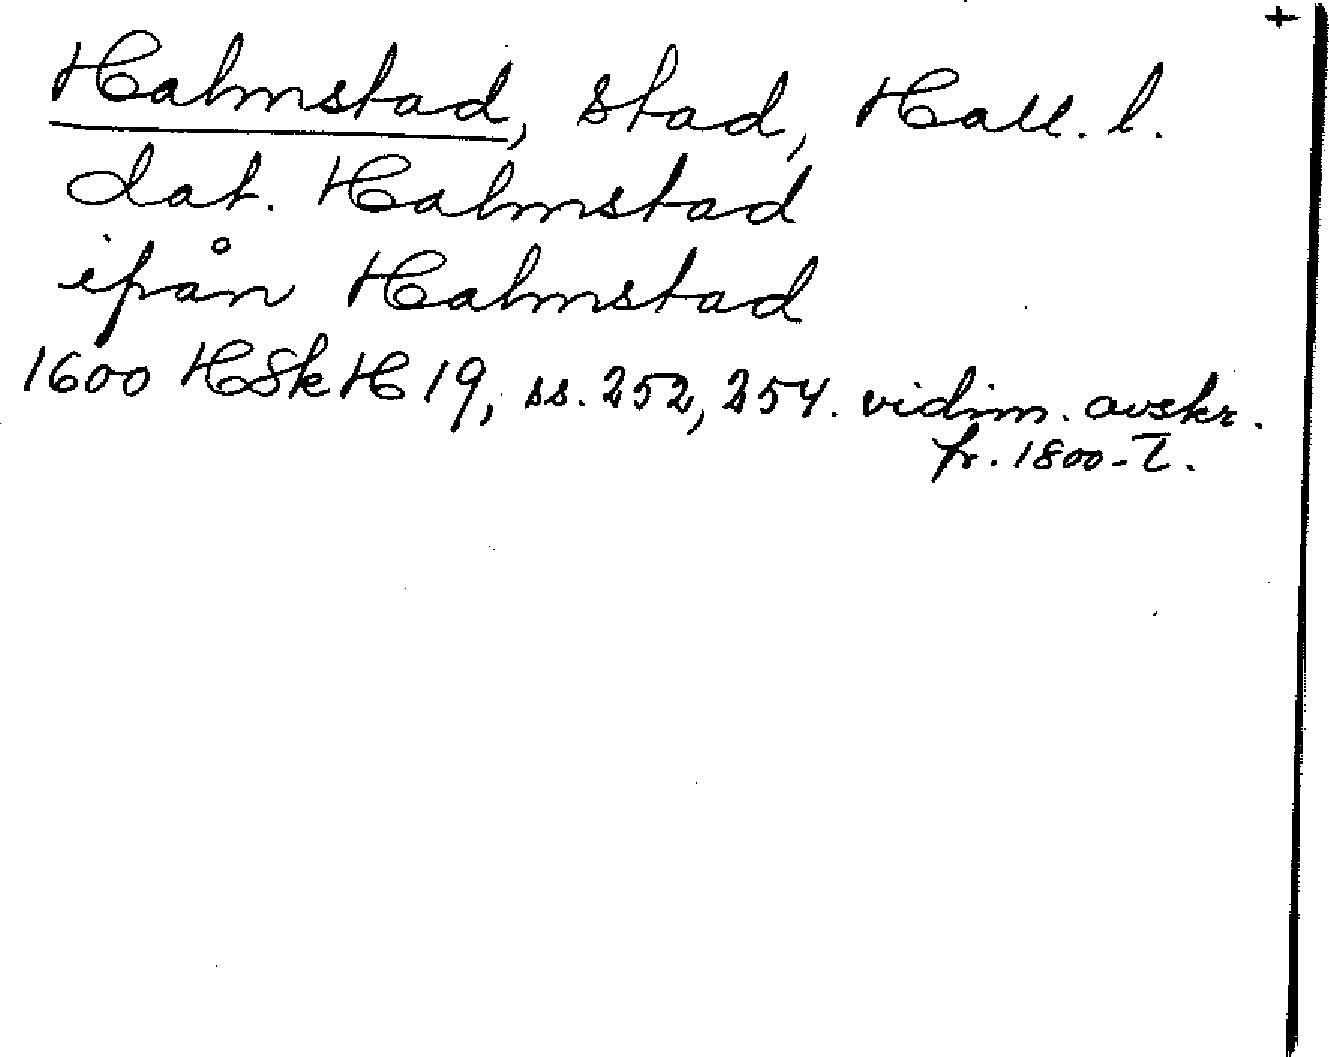 +
Halmstad, stad, Hall. l.
dat. Halmstad
ifrån Halmstad
1600 HSkH 19, ss. 252, 254. vidim. avskr.
fr. 1800-t.